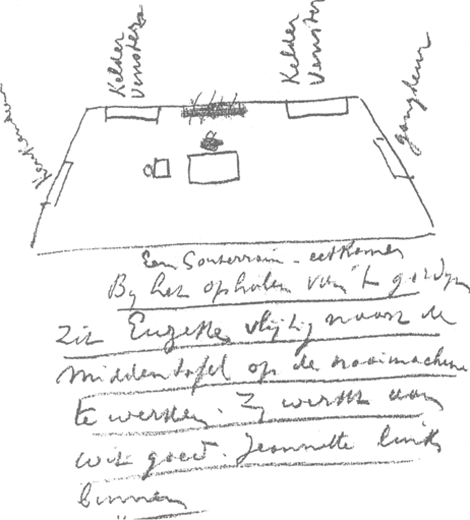 Kelder
Vensters
Kelder
Venster
gangdeur
Een Souterrain - eetkamer
By het ophalen van 't gordyn
zit Eugenie vlijtig naast de
middentafel op de naaimachine
te werken. Zy werkt aan
wit goed. Jeannette links
binnen